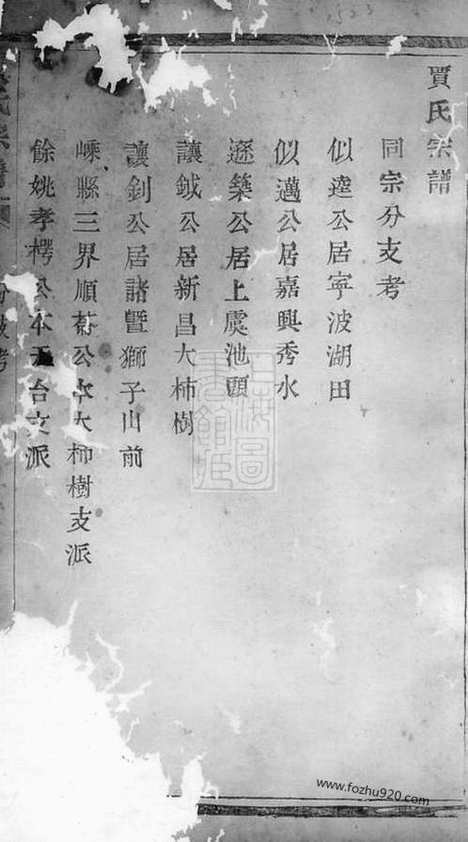 賈氏宗譜
同宗分支考
似達公居寧波湖田
似邁公居嘉興秀水
遜築公居上虞池頭
讓鉞公居新昌大柿樹
讓釗公居諸暨獅子山前
嵊縣三界順公大柿樹支派
餘姚孝樗本天台支派
上海圖書館
www.fozhu920.com